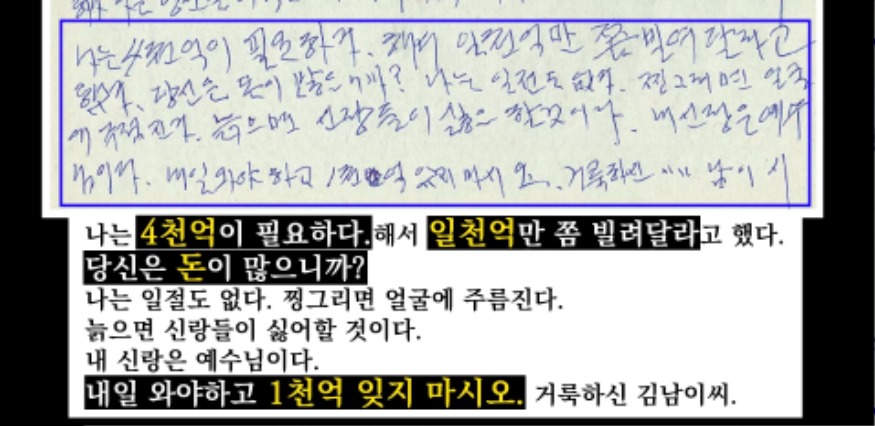 나는 4천억이 필요하다. 해서 일천억만 쫌 빌려달라고
했다. 당신은 돈이 많으니까? 나는 일전도 없다. 찡그리면 얼굴
에 주름진다. 늙으면 신랑들이 싫어 할것이다. 내 신랑은 예수
님이다. 내일 와야 하고 1천억 잊지 마시오. 거룩하신 남이 시
나는 4천억이 필요하다.해서 일천억만 쫌 빌려달라고 했다.
당신은 돈이 많으니까?
나는 일절도 없다. 찡그리면 얼굴에 주름진다.
늙으면 신랑들이 싫어할 것이다.
내 신랑은 예수님이다.
내일 와야하고 1천억 잊지 마시오. 거룩하신 김남이씨.